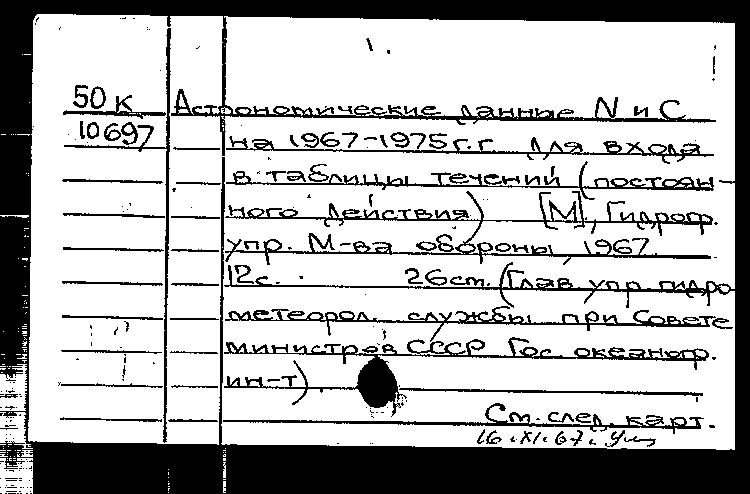 1.
50к Астрономические данные N и С
10697 на 1967-1975 г.г. для входа
в таблицы течений (постоян-
ного действия) [М], Гидрогр.
упр. М-ва обороны, 1967.
12с. 26 см. (Глав. упр. гидро
метеорол. службы при Совете
министров СССР Гос. океаногр.
ин-т).
См. след. карт.
16.XI.67г.